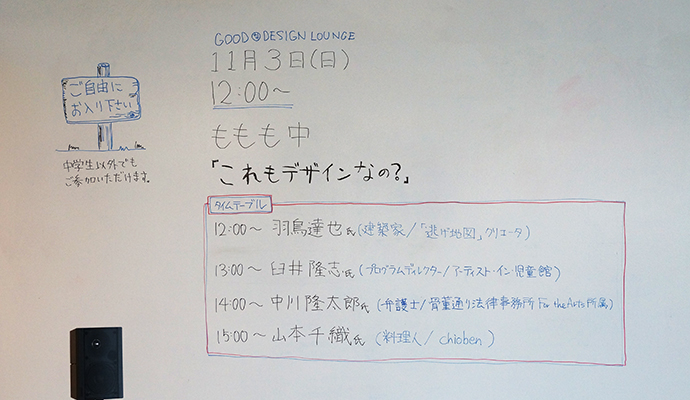 GOOD DESIGN LOUNGE
11月3日(日)
12:00〜
ももも中
「これもデザインなの?」
ご自由に
お入り下さい
中学生以外でも
ご参加いただけます。
タイムテーブル
12:00〜 羽鳥達也氏(建築家/「逃げ地図」クリエータ)
13:00〜 臼井隆志氏(プログラムディレクター/アーティスト・イン・児童館)
14:00〜 中川隆太郎氏(弁護士/骨董通り法律事務所 For the Arts所属)
15:00〜 山本千織氏(料理人/chioben)